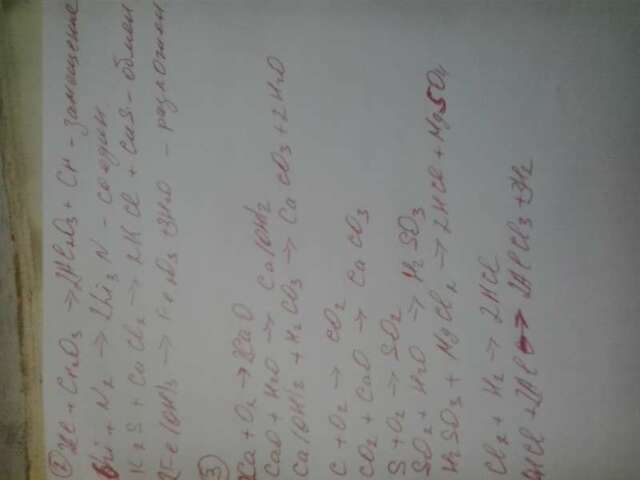 ② Al + Cr2O3 → 2AlCrO3 + Cr - замещение
6Li + N2 → 2Li3N - соедин
K2S + CuCl2 → 2KCl + CuS - обмен
2Fe(OH)3 → Fe2O3 + 3H2O - разложен
③
Ca + O2 → 2CaO
CaO + H2O → Ca(OH)2
Ca(OH)2 + H2CO3 → CaCO3 + 2H2O
C + O2 → CO2
CO2 + CaO → CaCO3
S + O2 → SO2
SO2 + H2O → H2SO3
H2SO3 + MgCl2 → 2HCl + MgSO4
Cl2 + H2 → 2HCl
HCl + 2Al → 2AlCl3 + 3H2